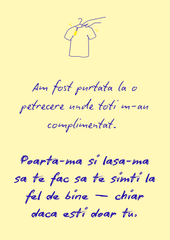 Am fost purtata la o
petrecere unde toti m-au
complimentat.
Poarta-ma si lasa-ma
sa te fac sa te simti la
fel de bine — chiar
daca esti doar tu.